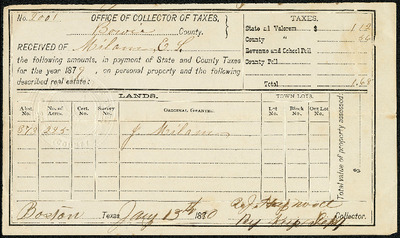 No. 2001 OFFICE OF COLLECTOR OF TAXES,
Bowie County.
RECEIVED OF Milam E. H.
the following amounts, in payment of State and County Taxes
for the year 1879, on personal property and the following
described real estate:
TAXES.
State ad Valorem $
County "
Revenue and School Poll
County Poll
Total 1.68
LANDS. TOWN LOTS.
Abst. No. No. of Acres. Cert. No. Survey No. ORIGINAL GRANTEE. Lot No. Block No. Out Lot No. Total value of property assessed
295 J Milam $
Boston Texas, Jany 13th 1880
Collector.
By